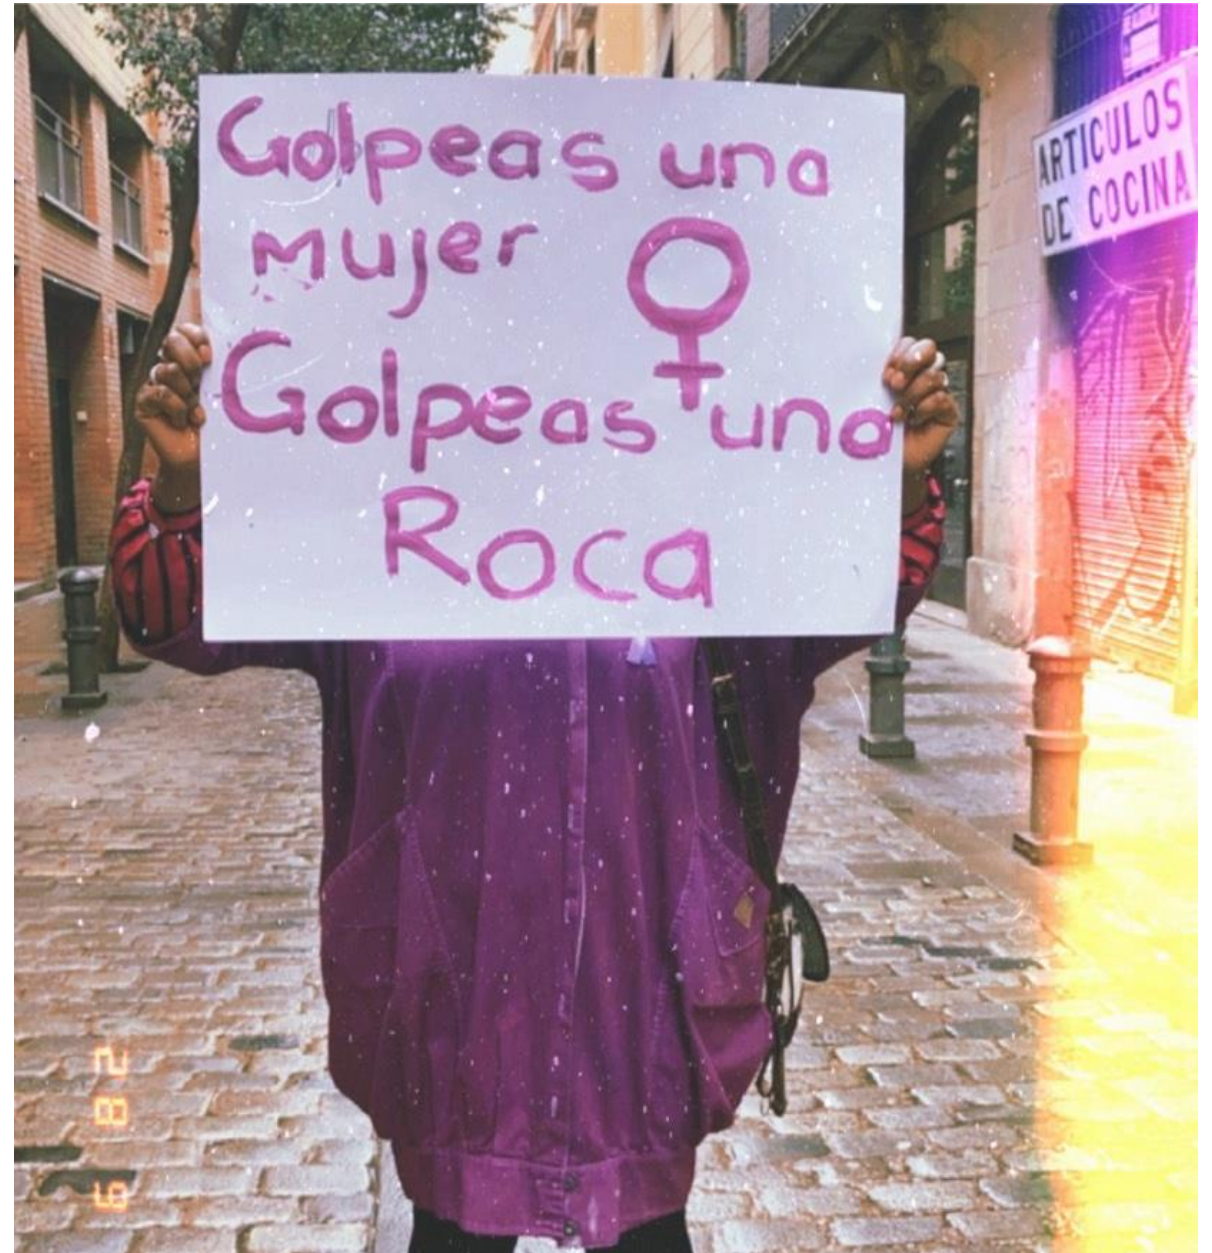 Golpeas una
mujer
Golpeas una
Roca
ARTICULOS
DE COCINA
6 82